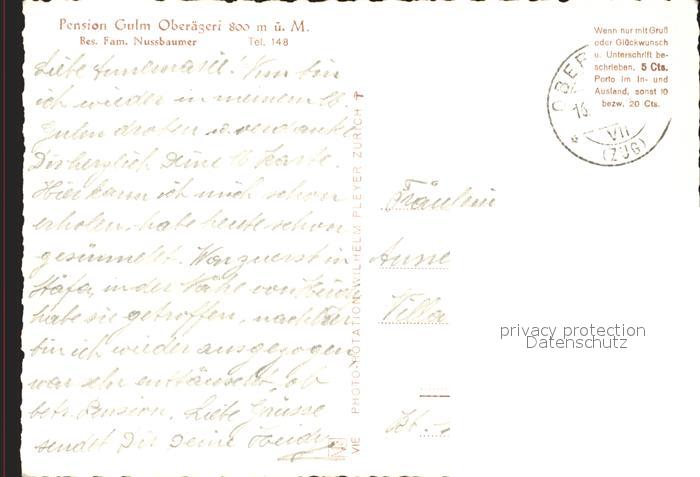 Pension Gulm Oberägeri 800 m ü. M.
Bes. Fam. Nussbaumer Tel. 148
Wenn nur mit Gruß
oder Glückwunsch
u. Unterschrift be-
schrieben. 5 Cts.
Porto im In- und
Ausland, sonst 10
bezw. 20 Cts.
OBER
VII
(ZUG)
Liebe Annemarie! Nun bin
ich wieder in meinem lb.
Gulm droben u. verdanke
Dir herzlich Deine lb Karte.
Hier kann ich mich schon
erholen, habe heute schon
gesünnelet. War zuerst in
Stäfa, in der Nähe von
habe sie getroffen, nachher
bin ich wieder ausgezogen,
war sehr enttäuscht, ob
betr. Pension. Liebe Grüsse
sendet Dir Deine Heidy
VIE PHOTO-ROTATION WILHELM PLEYER ZURICH 7
Fräulein
Anne
Villa
Kt.
privacy protection
Datenschutz